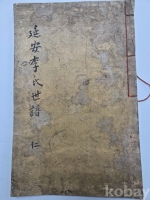 延安李氏世譜 仁
kobay